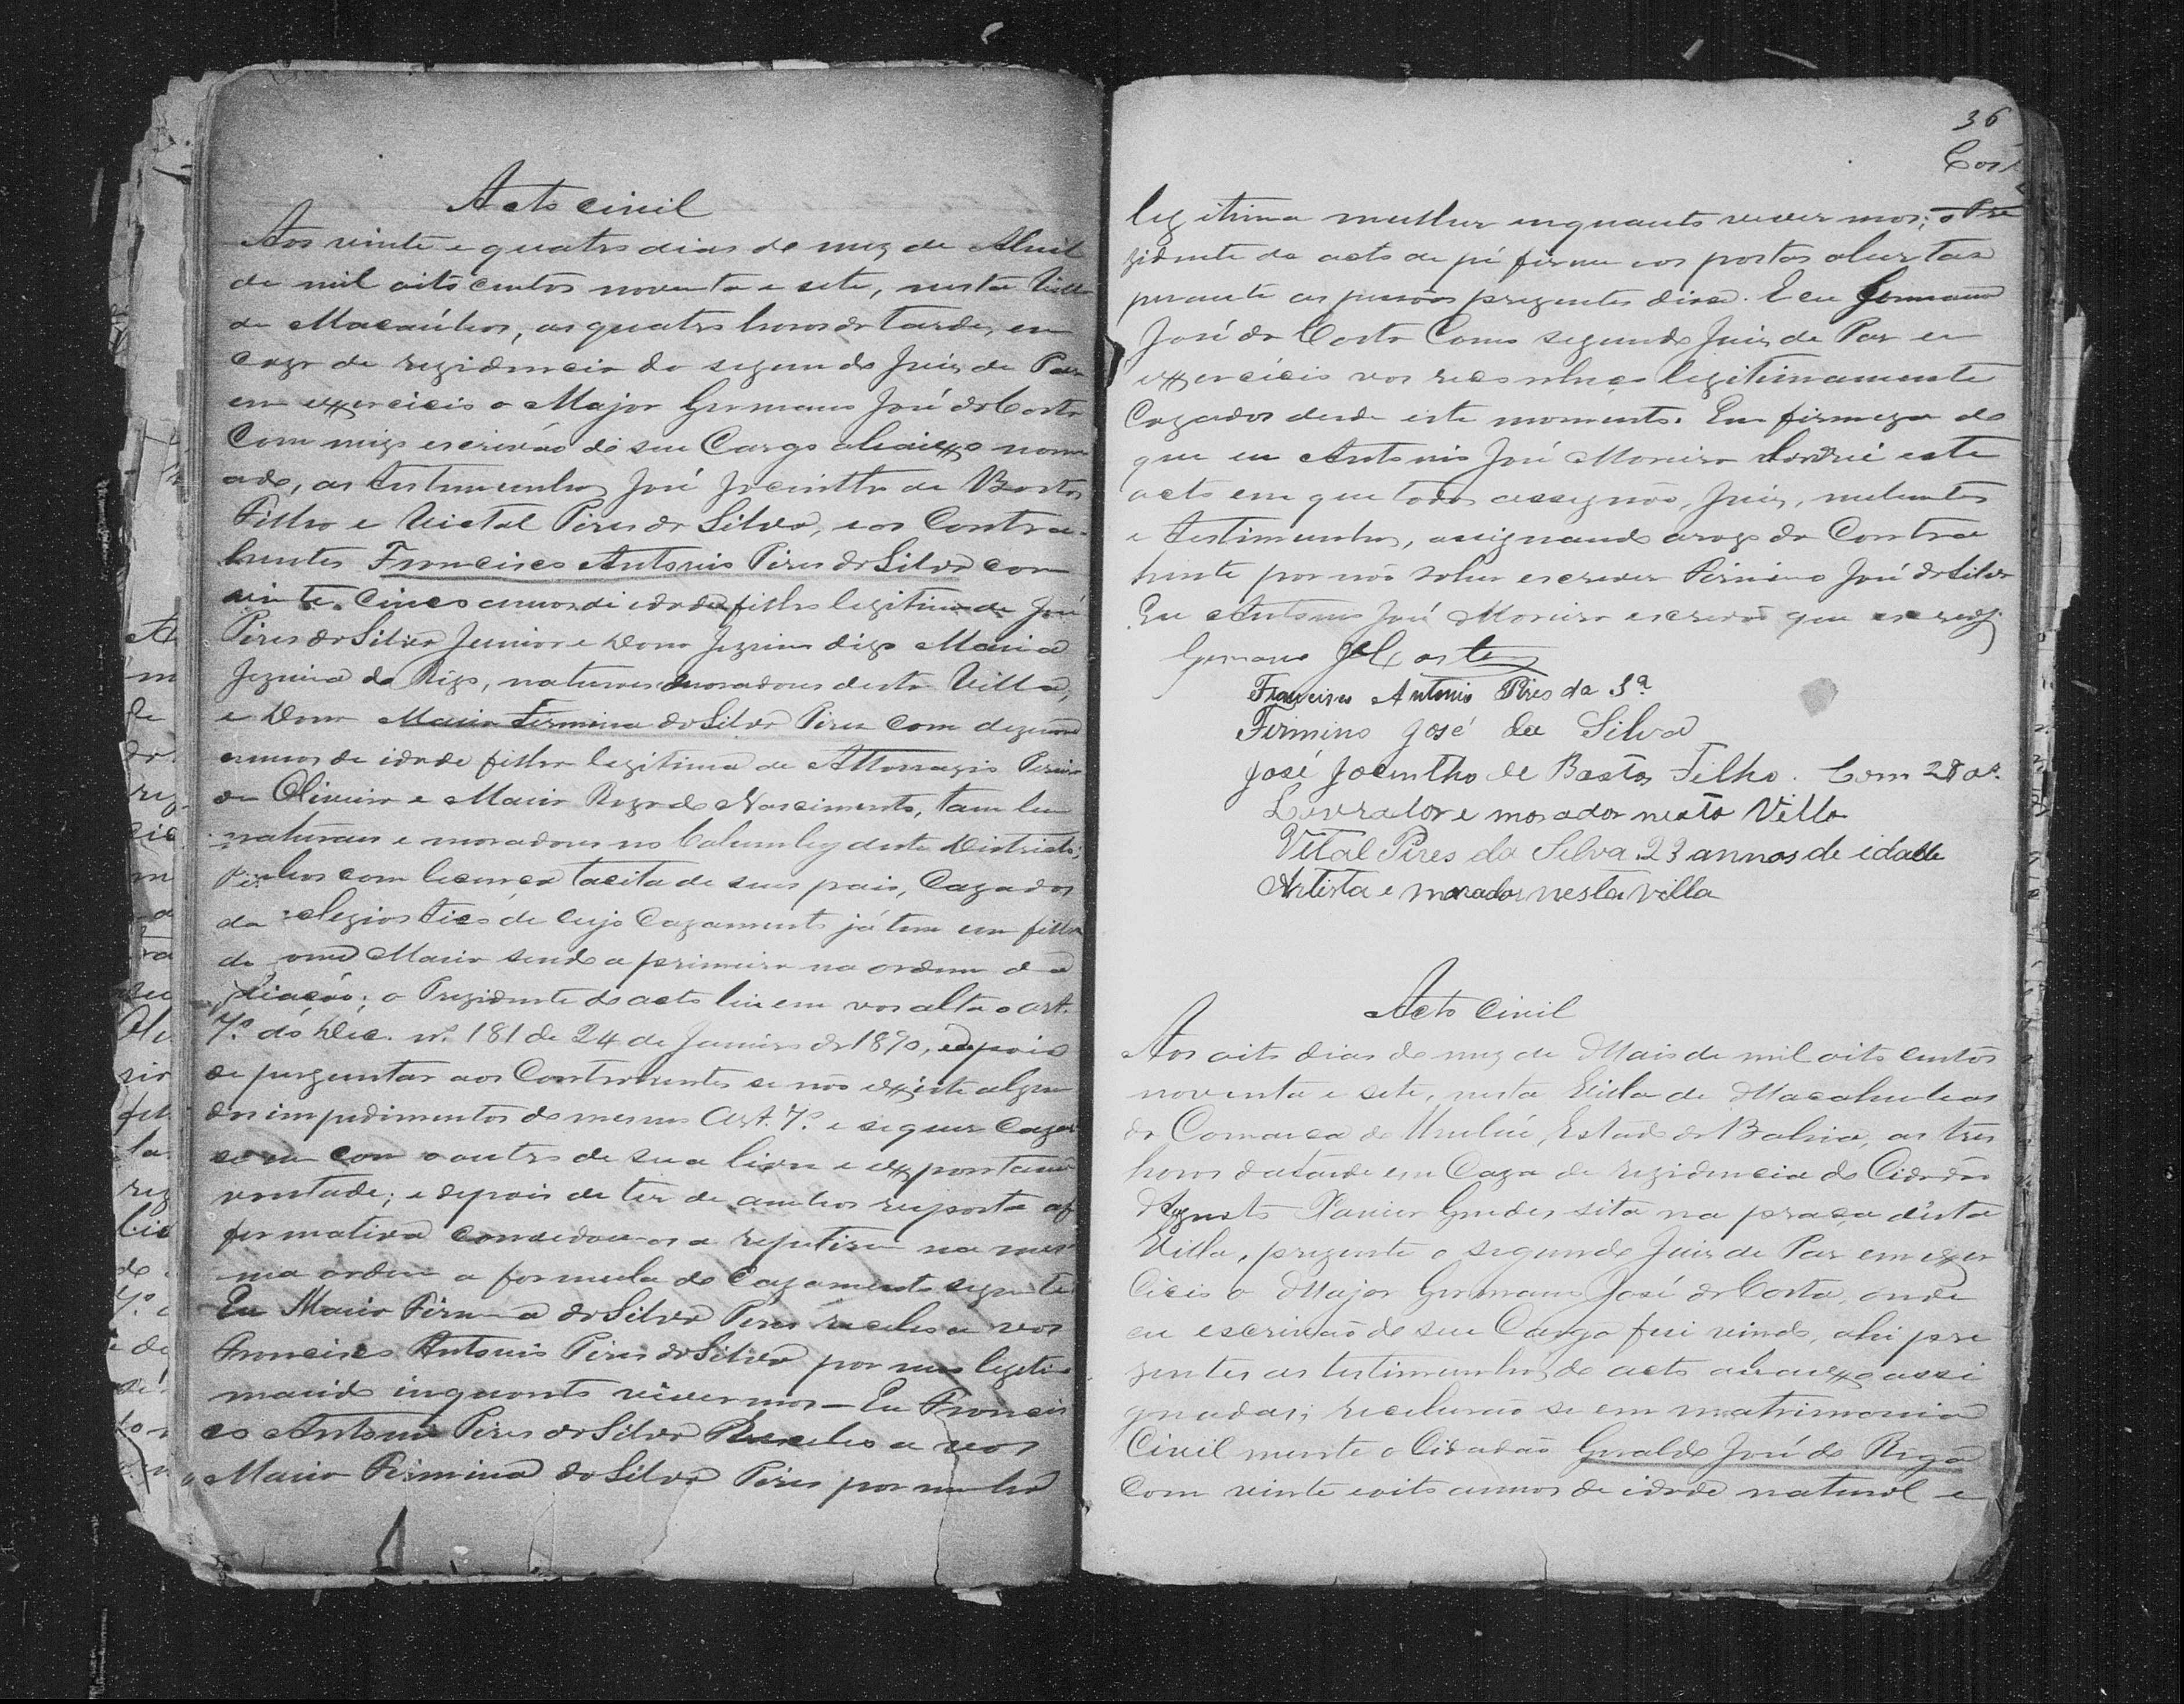 Acto civil
Aos vinte e quatro dias do mez de Abril
de mil oito centos noventa e sete, nesta Villa
de Macaúbas, as quatro horas da tarde, em
caza de rezidencia do segundo Juiz de Paz
em exxercicio o Major Germano José da Costa
Com migo escrivão de seu Cargo abaixxo nome
ado, as testimunhas José Jacintho de Bastos
Filho e Victal Pires da Silva, e os Contra-
hentes Francisco Antonio Pires da Silva com
vinte cinco annos di idade filho legitimo de José
Pires da Silva Junior e Dona Jezuina digo Maria
Jezuina do Rêgo, naturaes e moradores desta Villa,
e Dona Maria Firmina da Silva Pires com dezenove
annos de idade filha legitima de Pereira
de Oliveira e Maria Roza do Nascimento, tam bem
naturaes e moradores no deste Districto;
com licença tacita de seus pais, Cazados
eleziastico de cujo Cazamento já tem um filha
de nome Maria sendo a primeira na ordem da
filiação; o Prezidente do acto leu em voz alta o art.
7º do Dec. nº 181 de 24 de Janeiro de 1890, e depois
de perguntar aos Contrahentes se não exxiste algum
dos impedimentos do mesmo Art. 7º e si quer cazar
se um com o outro de sua livre e exxpontanea
vontade; e depois de ter de ambos resposta af
firmativa convidou-os a repetirem na mes
ma ordem a formula do Cazamento seguinte
Eu Maria Firmina da Silva Pires recebo a vos
Francisco Antonio Pires da Silva por meu legitimo
marido inquanto vivermos — Eu Francis
co Antonio Pires da Silva Recebo a vos
Maria Firmina da Silva Pires por minha
36
Cost
legitima mulher inquanto vivermos; o Pre
zidente do acto de pé firme e os portas abertas
perante as pessoas prezentes disse. E eu Germano
José da Costa Como segundo Juiz de Paz em
exxercicio vos reconheço legitimamente
Cazados desde este momento. Em firmeza do
que eu Antonio José Moreira lavrei este
acto em que todos assignão, Juiz, nubentes
e testimunhas, assignando arogo da Contra
hente por não saber escrever Firmino José da Silva
Eu Antonio José Moreira escrivão que escrevi
Germano J Costa
Francisco Antonio Pires da Sª
Firmino José da Silva
José Jacintho de Bastos Filho. Com 28 as.
Lavrador e morador nesta Villa
Vital Pires da Silva. 23 annos de idade
Artista e morador nesta villa
Acto Civil
Aos oito dias do mez de Maio de mil oito centos
noventa e sete, nesta Villa de Macahubas
da Comarca do Urubú, Estado da Bahia, as tres
horas da tarde em Caza de rezidencia do Cidadão
Augusto Xavier Guedes sita na praça desta
Villa, prezente o segundo Juiz de Paz em exxer
cicio o Major Germano José da Costa, onde
eu escrivão de seu Cargo fui vindo, ahi pre
zentes as testimunhas do acto abaixxo assi
gnadas; receberão se em matrimonio
Civil mente o Cidadão Geraldo José do Rego
Com vinte e oito annos de idade natural e